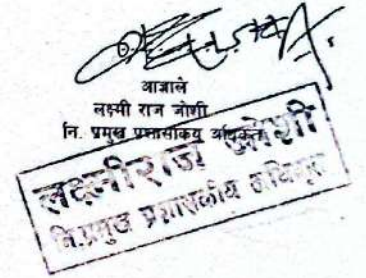 आज्ञाले
लक्ष्मी राज जोशी
नि. प्रमुख प्रशासकिय अधिकृत
लक्ष्मीराज जोशी
नि.प्रमुख प्रशासकीय अधिकृत